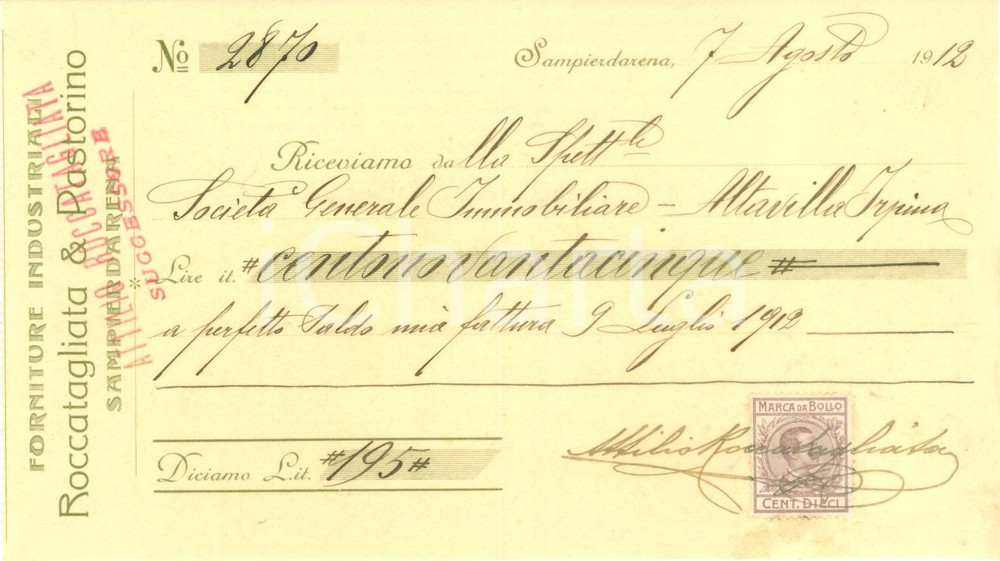 FORNITURE INDUSTRIALI
Roccatagliata & Pastorino
SAMPIERDARENA
ATTILIO ROCCATAGLIATA
SUCCESSORE
No 2870
Sampierdarena, 7 Agosto 1912
Riceviamo dalla Spettle
Società Generale Immobiliare - Altavilla Irpina
Lire it. #centonovantacinque#
a perfetto saldo mia fattura 9 Luglio 1912
MARCA DA BOLLO
Attilio Roccatagliata
CENT. DIECI
Diciamo L.it. #195#
iCharta